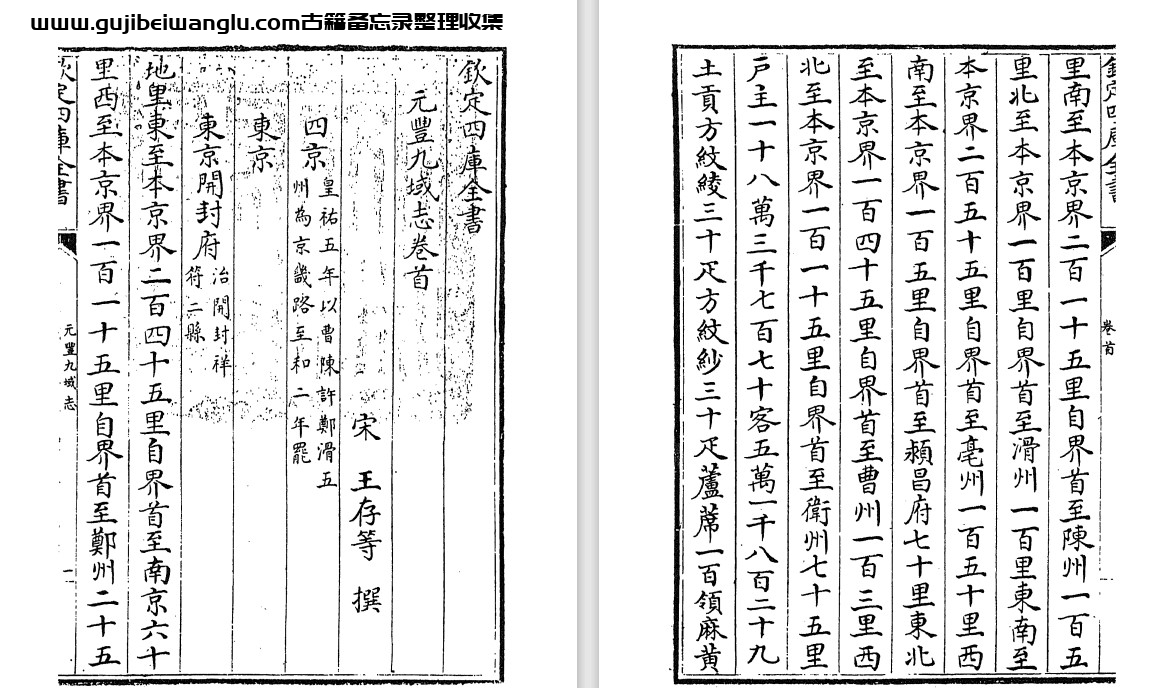 www.gujibeiwanglu.com古籍备忘录整理收集
欽定四庫全書
元豐九域志卷首
宋 王存等 撰
四京
皇祐五年以曹陳許鄭滑五
州為京畿路至和二年罷
東京
東京開封府
治開封祥
符二縣
地里東至本京界二百四十五里自界首至南京六十
里西至本京界一百一十五里自界首至鄭州二十五
欽定四庫全書
元豐九域志
一
欽定四庫全書
卷首
里南至本京界二百一十五里自界首至陳州一百五
里北至本京界一百里自界首至滑州一百里東南至
本京界二百五十五里自界首至亳州一百五十里西
南至本京界一百五里自界首至潁昌府七十里東北
至本京界一百四十五里自界首至曹州一百三里西
北至本京界一百一十五里自界首至衛州七十五里
戶主一十八萬三千七百七十客五萬一千八百二十九
土貢方紋綾三十疋方紋紗三十疋蘆蓆一百領麻黃